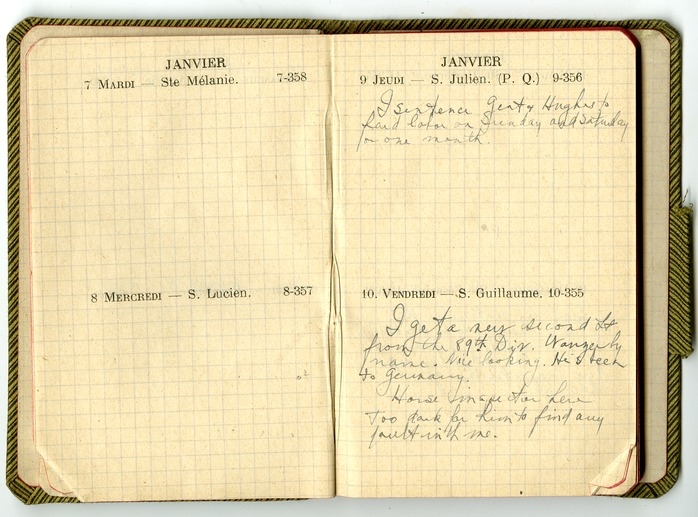 JANVIER
7 MARDI — Ste Mélanie. 7-358
8 MERCREDI — S. Lucien. 8-357
JANVIER
9 JEUDI — S. Julien. (P. Q.) 9-356
I sentence Gent & Hughes to
hard labor on Sunday and Saturday
for one month.
10. VENDREDI — S. Guillaume. 10-355
I get a new second Lt
from the 89th Div. Wanzer by
name. Nice looking. He's been
to Germany.
Horse inspector here
Too dark for him to find any
fault with me.